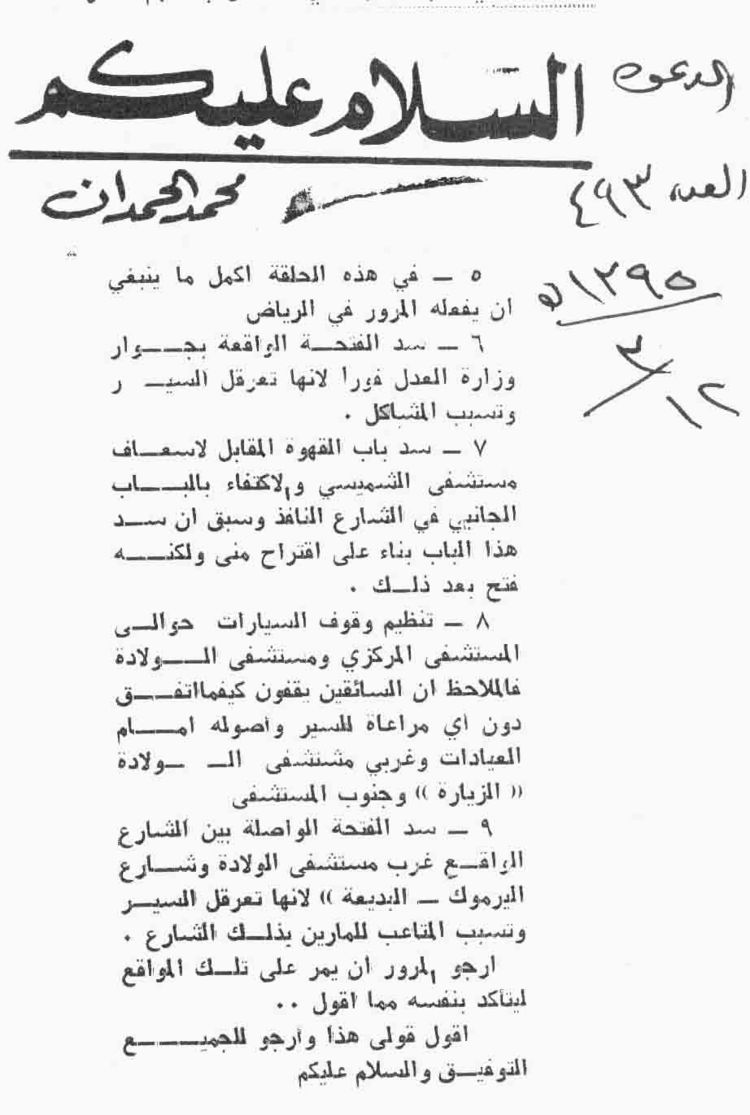 السلام عليكم
محمد الحمدان
الدعوة
العدد ٤٩٣
١٣٩٥ هـ
١٢/٣
٥ ــ في هذه الحلقة اكمل ما ينبغي
ان يفعله المرور في الرياض
٦ ــ سد الفتحــة الواقعة بجــوار
وزارة العدل فوراً لانها تعرقل السيـ ر
وتسبب المشاكل .
٧ ــ سد باب القهوة المقابل لاسعــاف
مستشفى الشميسي والاكتفاء بالبــاب
الجانبي في الشارع النافذ وسبق ان ســد
هذا الباب بناء على اقتراح منى ولكنــه
فتح بعد ذلــك .
٨ ــ تنظيم وقوف السيارات حوالــى
المستشفى المركزي ومستشفى الــولادة
فالملاحظ ان السائقين يقفون كيفمااتفــق
دون اي مراعاة للسير واصوله امــام
العيادات وغربي مشتشفى الــ ــولادة
(( الزيارة )) وجنوب المستشفى
٩ ــ سد الفتحة الواصلة بين الشارع
الواقــع غرب مستشفى الولادة وشــارع
اليرموك ــ البديعة )) لانها تعرقل السيــر
وتسبب المتاعب للمارين بذلــك الشارع .
ارجو المرور ان يمر على تلــك المواقع
ليتأكد بنفسه مما اقول ..
اقول قولى هذا وأرجو للجميــــع
التوفيــق والسلام عليكم